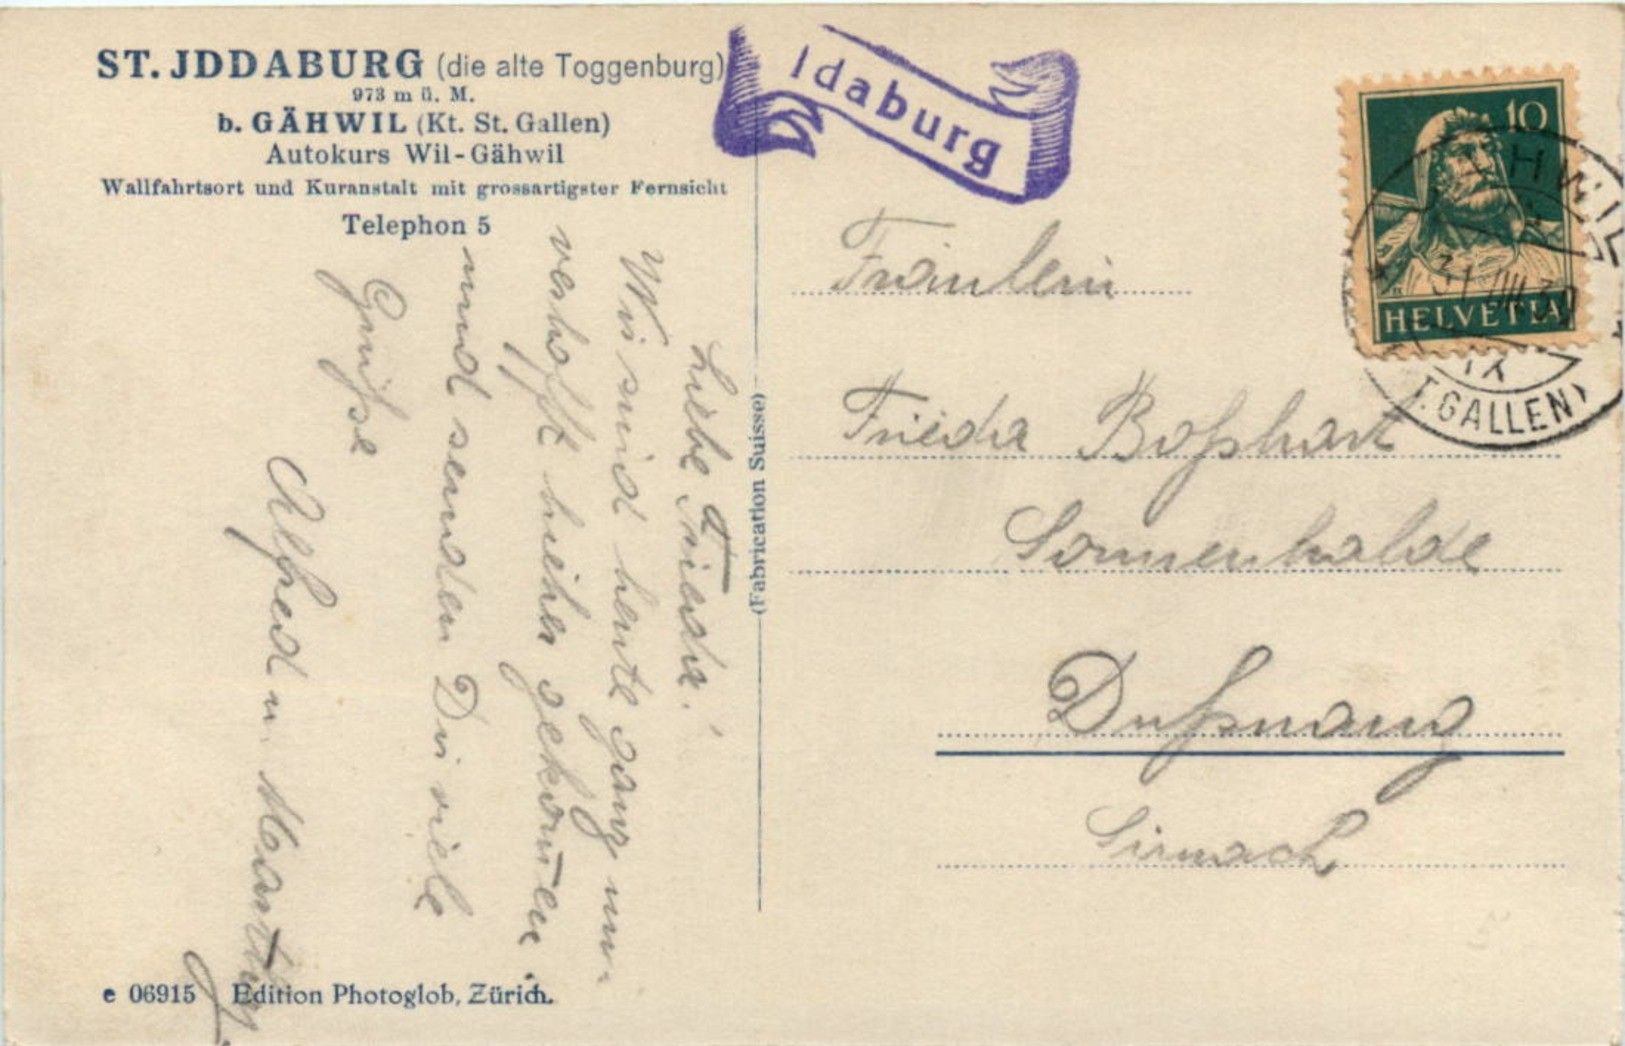 ST. JDDABURG (die alte Toggenburg)
973 m ü. M.
b. GÄHWIL (Kt. St. Gallen)
Autokurs Wil-Gähwil
Wallfahrtsort und Kuranstalt mit grossartigster Fernsicht
Telephon 5
Idaburg
10
HELVETIA
HWIL
T. GALLEN)
Liebe Frieda!
Wir sind heute ganz
hieher gekommen
und senden Dir viele
Grüsse
Alfred u.
(Fabrication Suisse)
Fräulein
Frieda Boßhart
Sonnenhalde
Dußnang
Sirnach
e 06915 Edition Photoglob, Zürich.